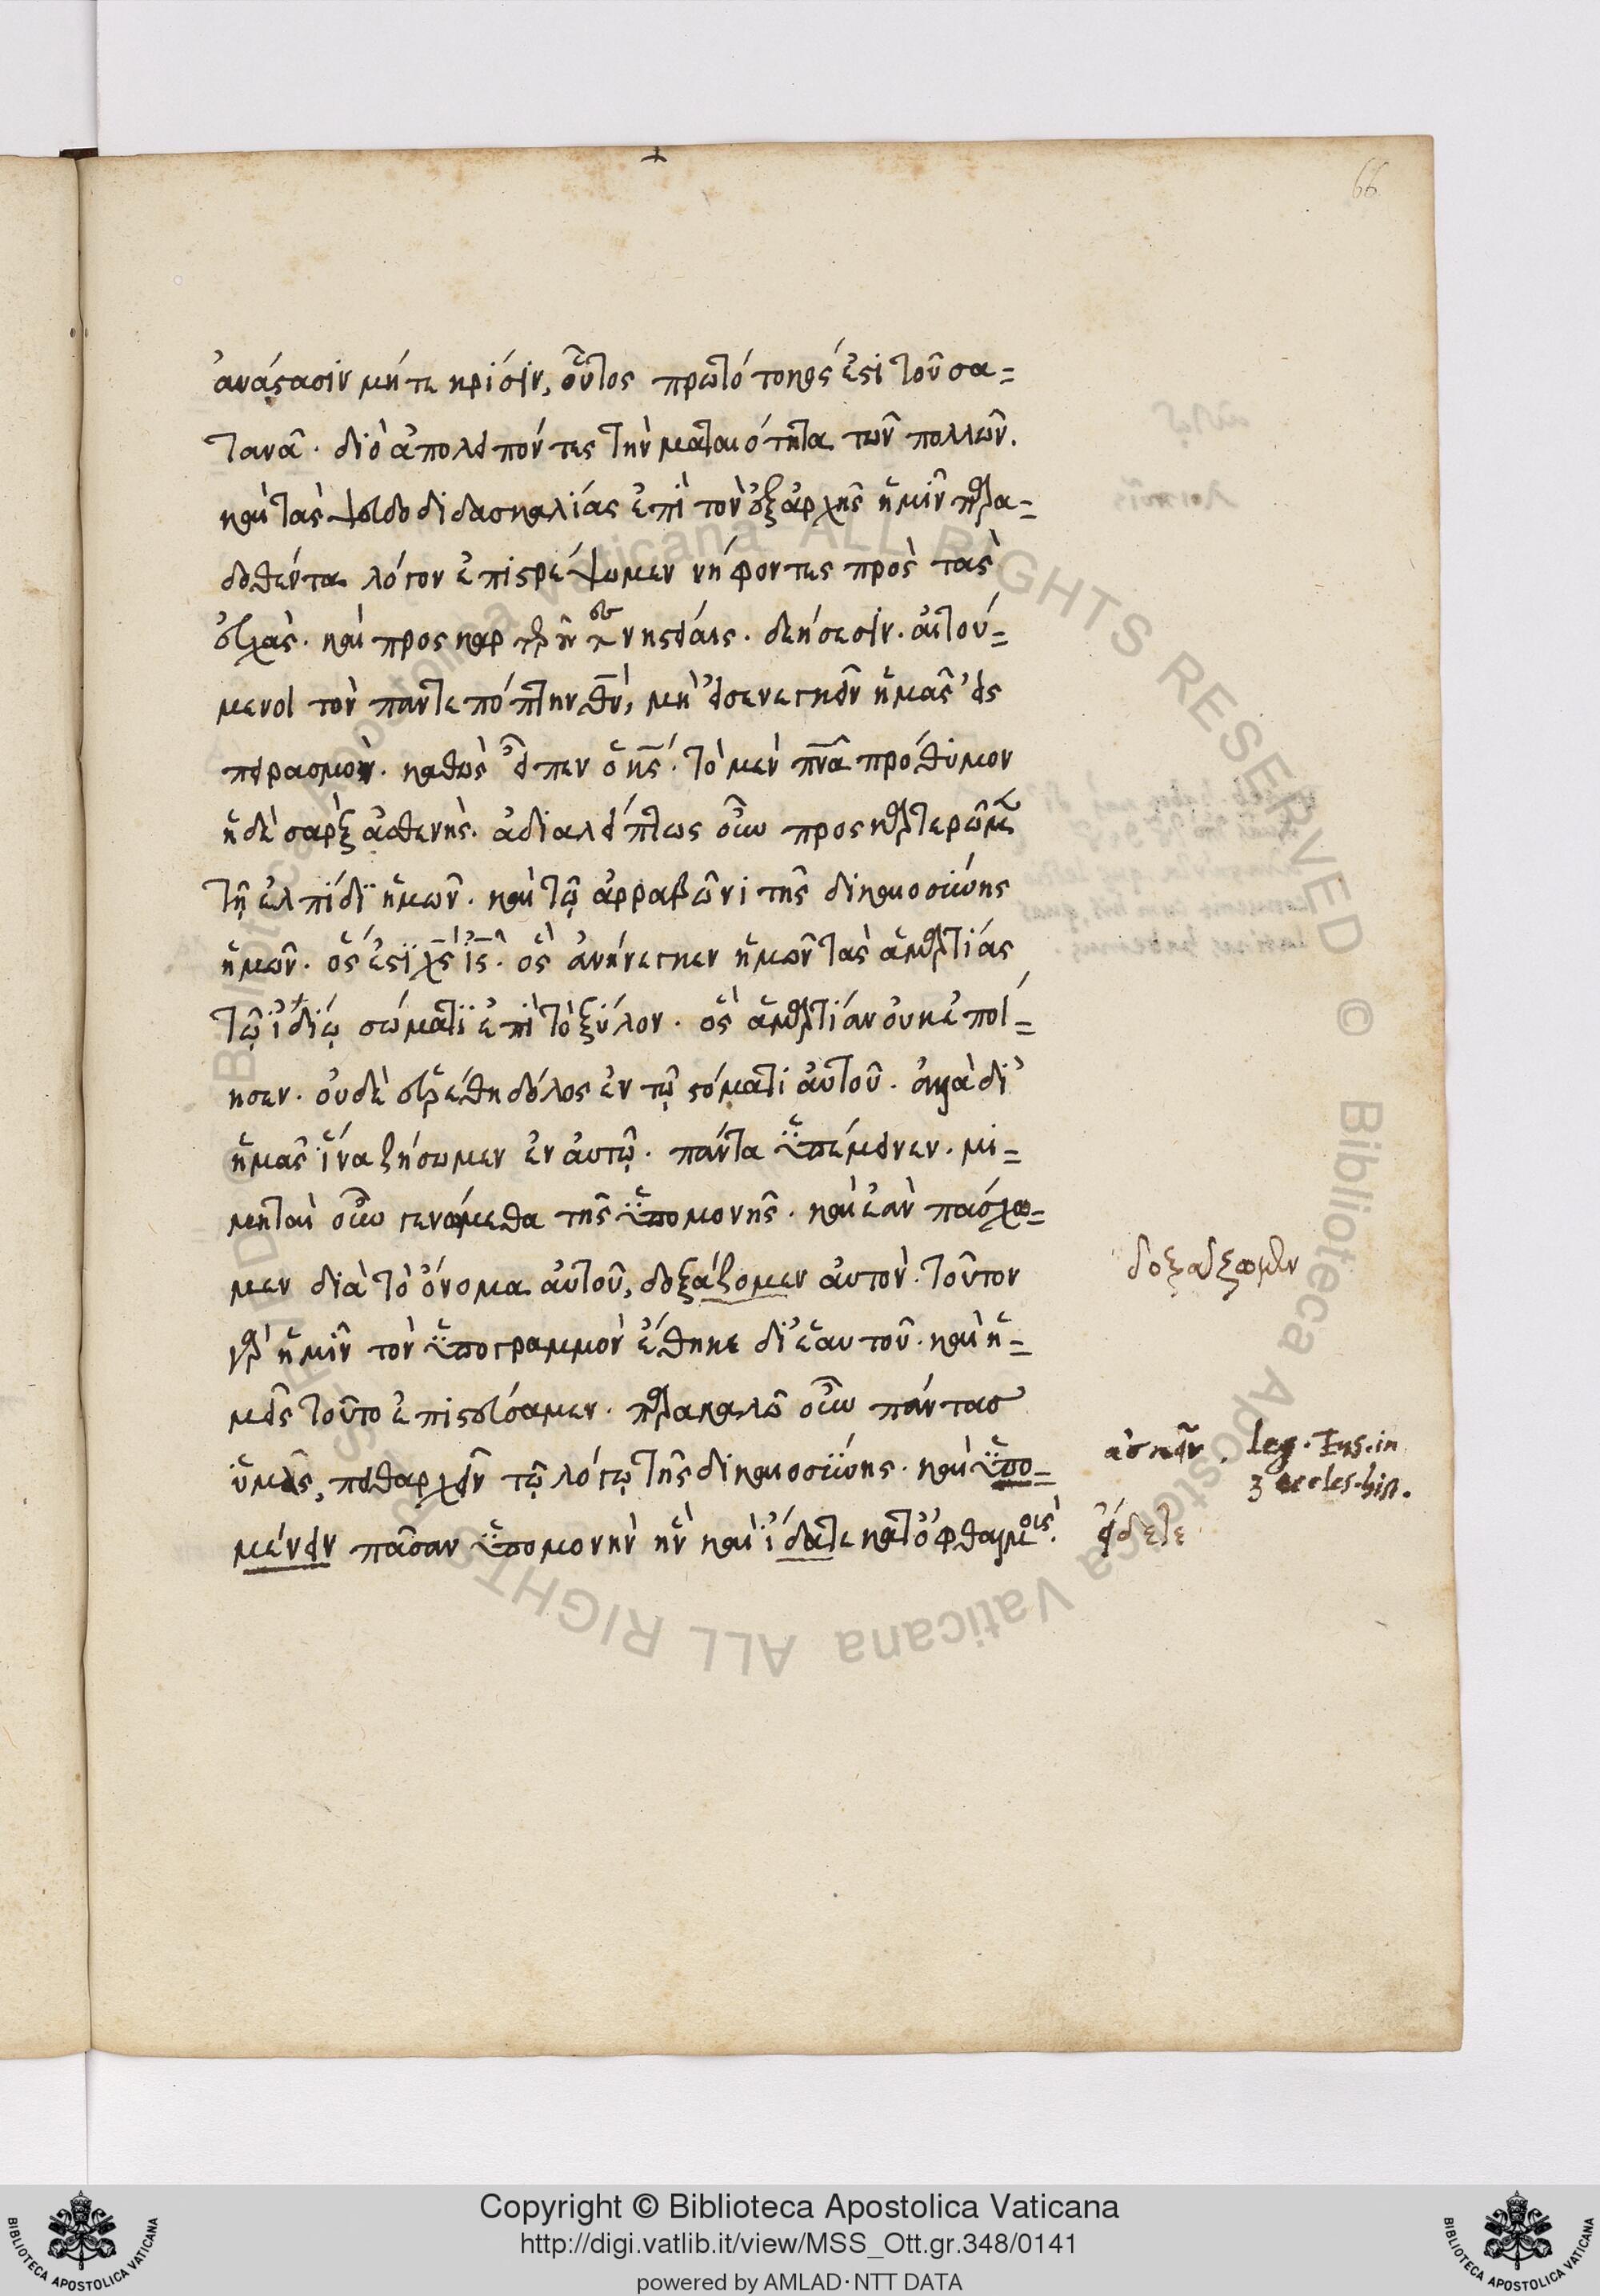 66
ἀνάστασιν μήτε κρίσιν, οὗτος πρωτότοκός ἐστι τοῦ σα=
τανᾶ. διὸ ἀπολειπόντες τὴν ματαιότητα τῶν πολλῶν.
καὶ τὰς ψευδοδιδασκαλίας ἐπὶ τὸν ἐξ ἀρχῆς ἡμῖν παρα=
δοθέντα λόγον ἐπιστρέψωμεν νήφοντες πρὸς τὰς
εὐχὰς. καὶ προσκαρτεροῦντες νηστείαις. δεήσεσιν. αἰτού=
μενοι τὸν παντεπόπτην θν̅, μὴ εἰσενεγκεῖν ἡμᾶς εἰς
πειρασμὸν. καθὼς εἶπεν ὁ κς̅. τὸ μὲν πνᾶ̅ πρόθυμον
ἡ δὲ σαρξ ἀσθενὴς. ἀδιαλείπτως οὖν προσκαρτερῶμεν
τῇ ἐλπίδι ἡμῶν. καὶ τῷ ἀρραβῶνι τῆς δικαιοσύνης
ἡμῶν. ὅς ἐστὶ χς̅ ις̅. ὃς ἀνήνεγκεν ἡμῶν τὰς ἁμαρτίας
τῷ ἰδίῳ σώματι ἐπὶ τὸ ξύλον. ὃς ἁμαρτίαν οὐκ ἐποί=
ησεν. οὐδὲ εὑρέθη δόλος ἐν τῷ στόματι αὐτοῦ. ἀλλὰ δι'
ἡμᾶς ἵνα ζήσωμεν ἐν αὐτῷ. πάντα ὑπέμεινεν. μι=
μηταὶ οὖν γενώμεθα τῆς ὑπομονῆς. καὶ ἐὰν πάσχω=
μεν διὰ τὸ ὄνομα αὐτοῦ, δοξάζομεν αὐτὸν. τοῦτον
δοξάζωμεν
γὰρ ἡμῖν τὸν ὑπογραμμὸν ἔθηκε δι' ἑαυτοῦ. καὶ ἡ=
μεῖς τοῦτο ἐπιστεύσαμεν. παρακαλῶ οὖν πάντας
ὑμᾶς, πειθαρχεῖν τῷ λόγῳ τῆς δικαιοσύνης. καὶ ὑπο=
ἀσκεῖν. leg. Eus. in
3 eccles. hist.
μένειν πᾶσαν ὑπομονὴν ἣν καὶ ἴδατε κατ' ὀφθαλμοὺς.
εἴδετε
Copyright © Biblioteca Apostolica Vaticana
http://digi.vatlib.it/view/MSS_Ott.gr.348/0141
powered by AMLAD·NTT DATA